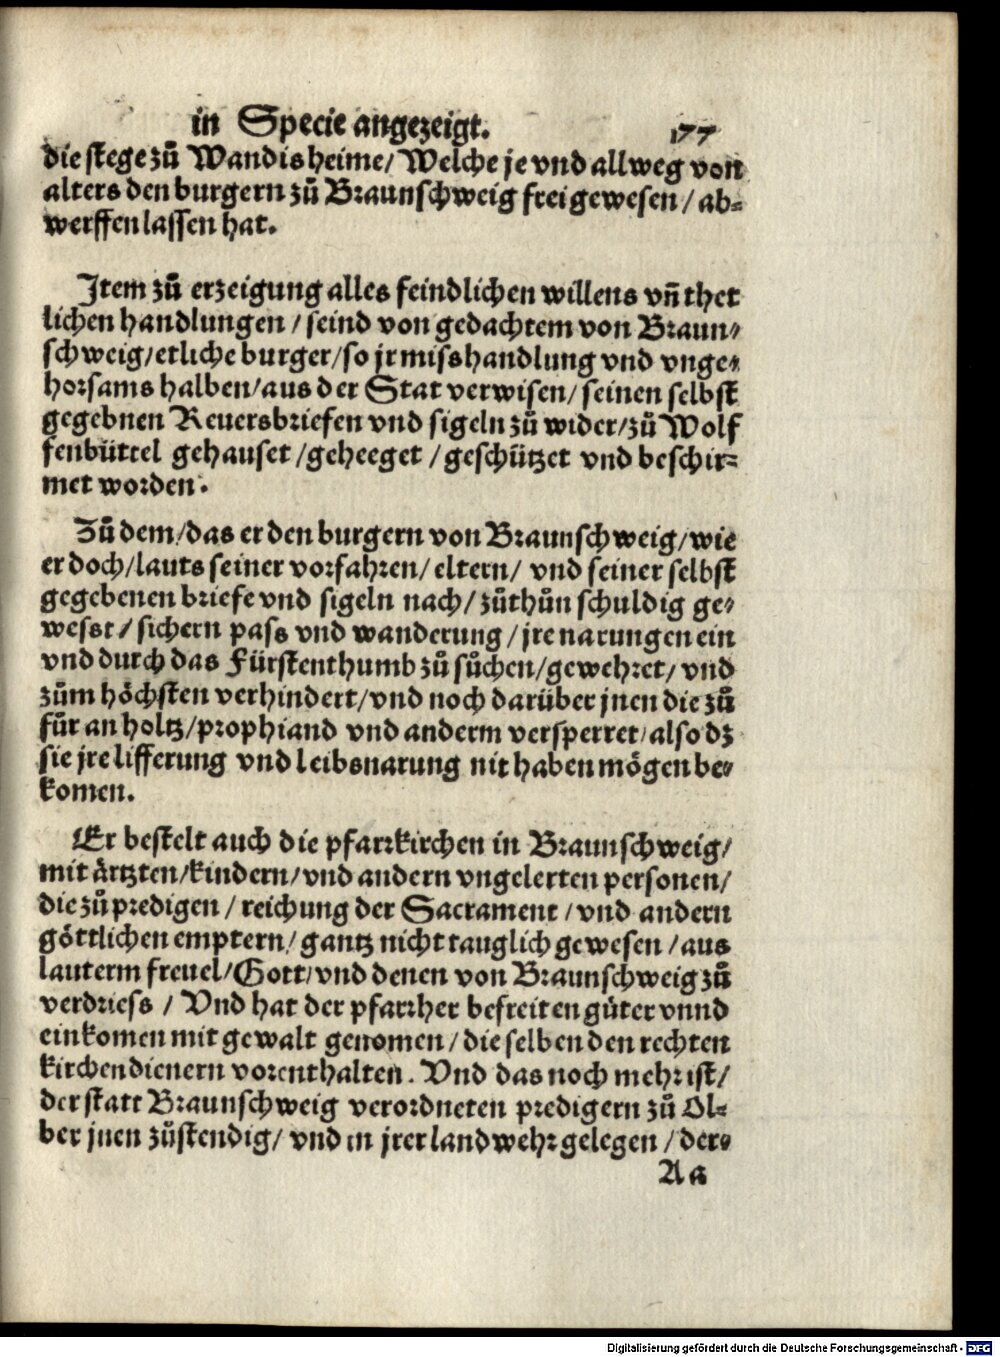 in Specie angezeigt. 177
die stege zů Wandisheime/ Welche je vnd allweg von
alters den burgern zů Braunschweig frei gewesen/ ab⸗
werffen lassen hat.
Item zů erzeigung alles feindlichen willens vñ thet
lichen handlungen/ seind von gedachtem von Braun⸗
schweig/ etliche burger/ so jr misshandlung vnd vnge⸗
horsams halben/ aus der Stat verwisen/ seinen selbst
gegebnen Reuersbriefen vnd sigeln zů wider/ zů Wolf
fenbüttel gehauset/ geheeget/ geschützet vnd beschir⸗
met worden.
Zů dem/ das er den burgern von Braunschweig/ wie
er doch/ lauts seiner vorfahren/ eltern/ vnd seiner selbst
gegebenen briefe vnd sigeln nach/ zůthůn schuldig ge⸗
wesst/ sichern pass vnd wanderung/ jre narungen ein
vnd durch das Fürstenthumb zů sůchen/ gewehret/ vnd
zům höchsten verhindert/ vnd noch darüber jnen die zů
fůr an holtz/ prophiand vnd anderm versperret/ also dz
sie jre lifferung vnd leibsnarung nit haben mögen be⸗
komen.
Er bestelt auch die pfarrkirchen in Braunschweig/
mit ärtzten/ kindern/ vnd andern vngelerten personen/
die zů predigen/ reichung der Sacrament/ vnd andern
göttlichen emptern/ gantz nicht tauglich gewesen/ aus
lauterm freuel/ Gott/ vnd denen von Braunschweig zů
verdriess/ Vnd hat der pfarrher befreiten güter vnnd
einkomen mit gewalt genomen/ die selben den rechten
kirchendienern vorenthalten. Vnd das noch mehr ist/
der statt Braunschweig verordneten predigern zů Öl⸗
ber jnen zůstendig/ vnd in jrer landwehr gelegen/ der⸗
Aa
Digitalisierung gefördert durch die Deutsche Forschungsgemeinschaft - DFG